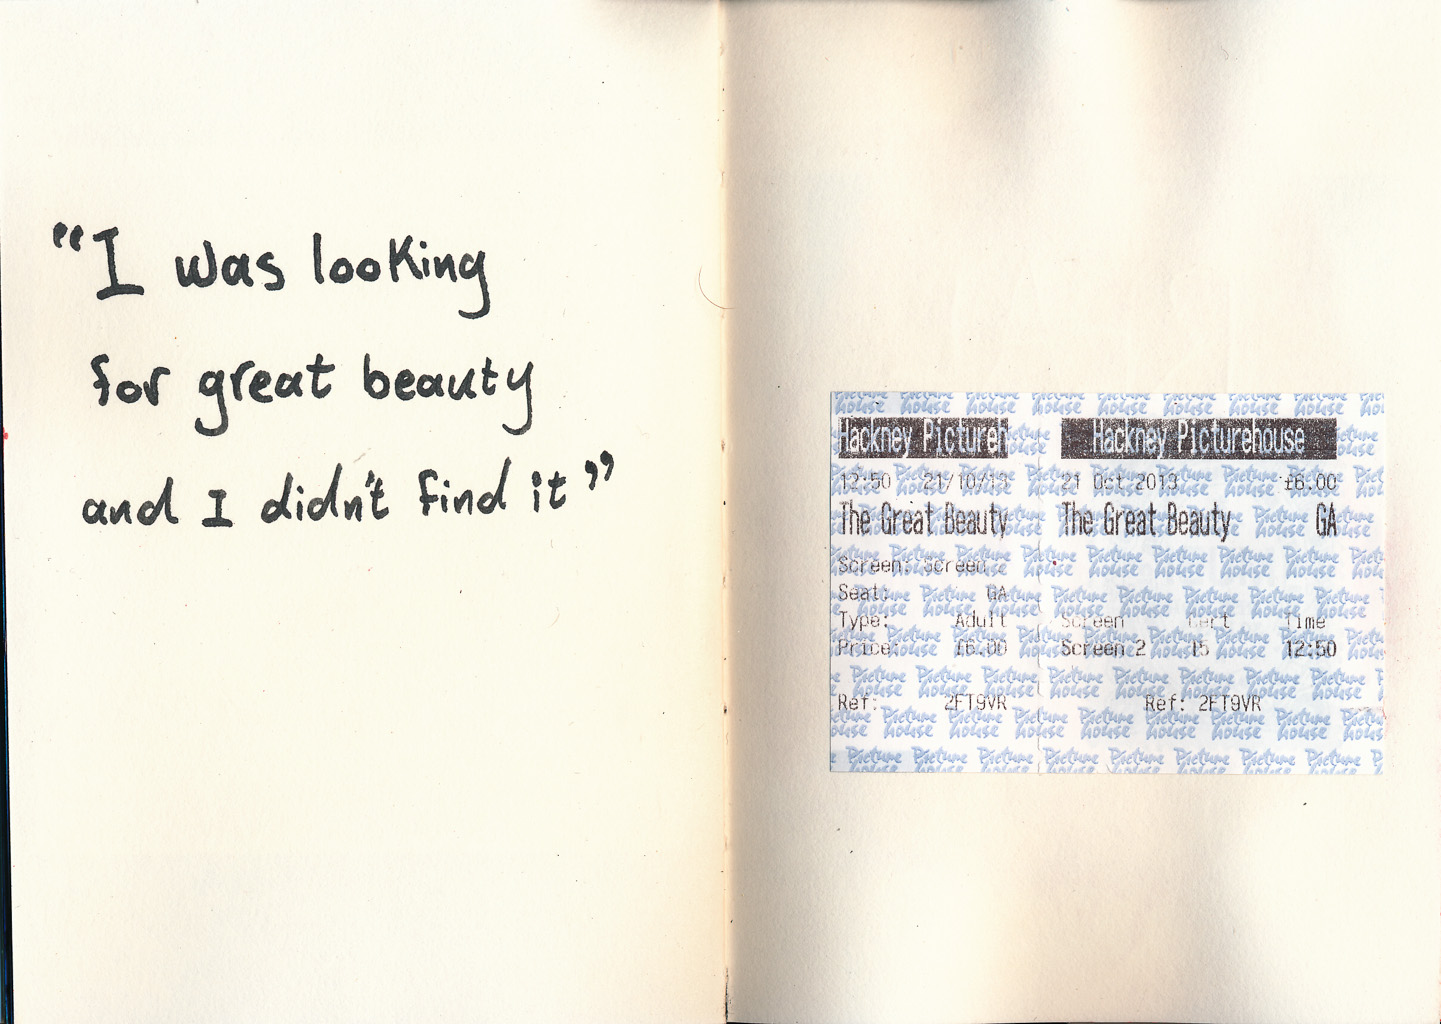 “I was looking
for great beauty
and I didn't find it”
Hackney Pictureh
12:50 21/10/13
The Great Beauty
Screen: Screen
Seat: GA
Type: Adult
Price: £6.00
Ref: 2FT9VR
Hackney Picturehouse
21 Oct 2013 £6.00
The Great Beauty GA
Screen Cert Time
Screen 2 15 12:50
Ref: 2FT9VR
Picture
house